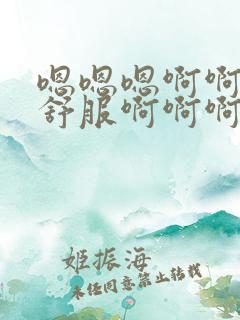 嗯嗯嗯啊啊
舒服啊啊啊
姬振海
未经同意禁止转载